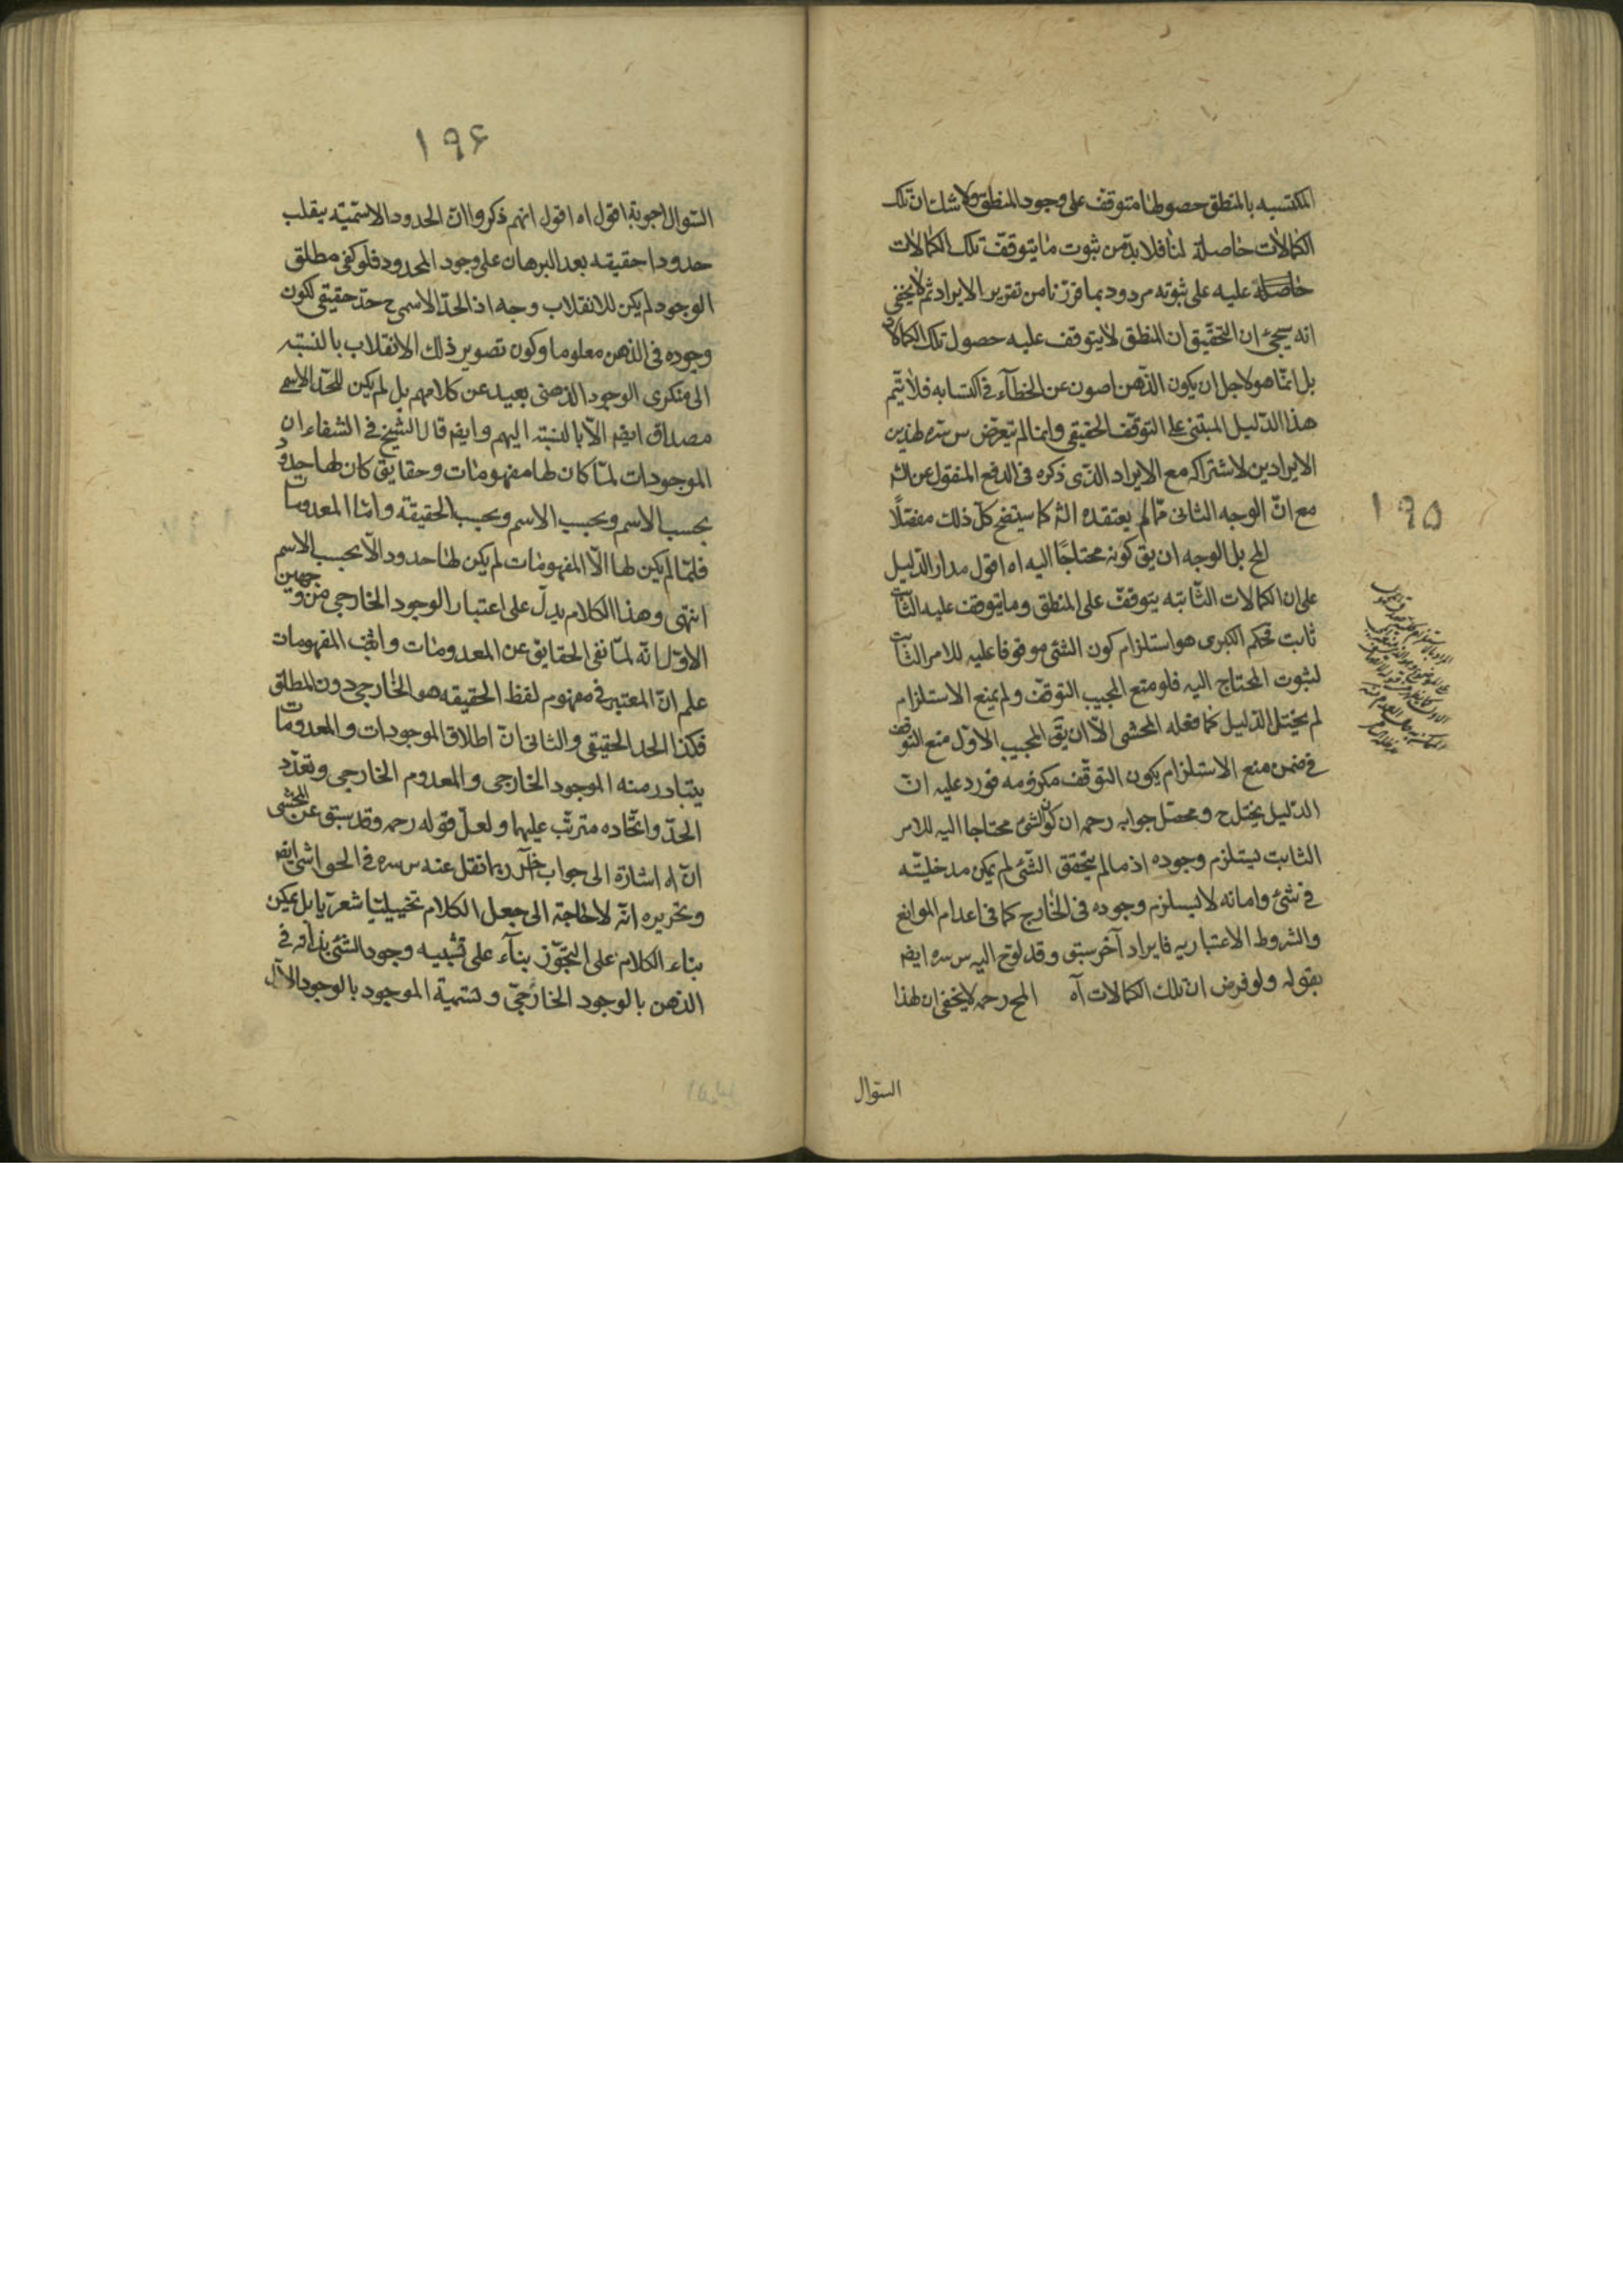 المكتسبه بالمنطق حصولها متوقف على وجود المنطق ولا شك ان تلك
الكمالات حاصلة لنا فلا بد من ثبوت ما يتوقف تلك الكمالات
حاصلة عليه على ثبوته مردود بما قررنا من تقرير الايراد ثم لا يخفى
انه سيجئ ان التحقيق ان المنطق لا يتوقف عليه حصول تلك الكمالات
بل انما هو لاجل ان يكون الذهن اصون عن الخطاء فى اكتسابه فلا يتم
هذا الدليل المبتنى على التوقف الحقيقى وانما لم يتعرض س سره لهذين
الايرادين لاشتراكه مع الايراد الذى ذكره فى الدفع المنقول عن الش
مع ان الوجه الثانى مما لم يعتقده الش كما سيتضح كل ذلك مفصلا
١٩٥
المح بل الوجه ان يق كونه محتاجا اليه اه اقول مدار الدليل
على ان الكمالات الثابته يتوقف على المنطق وما يتوقف عليه الثابت
ثابت فحكم الكبرى هو استلزام كون الشئ موقوفا عليه للامر الثابت
لثبوت المحتاج اليه فلو منع المجيب التوقف ولم يمنع الاستلزام
لم يختل الدليل كما فعله المحشى الا ان يق المجيب الاول منع التوقف
فى ضمن منع الاستلزام يكون التوقف فورد عليه ان
الدليل يختل ح ومحصل جوابه رحمه ان كون الشئ محتاجا اليه للامر
الثابت يستلزم وجوده اذ ما لم يتحقق الشئ لم يمكن مدخليته
فى شئ واما انه لا يستلزم وجوده فى الخارج كما فى اعدام الموانع
والشروط الاعتباريه فايراد آخر سبق وقد لوح اليه س سره ايضه
بقوله ولو فرض ان تلك الكمالات آه المح رحمه لا يخفى ان لهذا
السؤال
١٩۶
السؤال اجوبة اقول اه اقول انهم ذكروا ان الحدود الاسمية ينقلب
حدودا حقيقه بعد البرهان على وجود المحدود فلو كفى مطلق
الوجود لم يكن للانقلاب وجه اذ الحد الاسمى ح حد حقيقى لكون
وجوده فى الذهن معلوما وكون تصوير ذلك الانقلاب بالنسبته
الى منكرى الوجود الذهنى بعيد عن كلامهم بل لم يكن للحد الاسمى
مصداق ايضه الا بالنسبته اليهم وايضه قال الشيخ فى الشفاء ان
الموجودات لما كان لها مفهومات وحقايق كان لها حدود
بحسب الاسم وبحسب الاسم وبحسب الحقيقة واما المعدومات
فلما لم يكن لها الا المفهومات لم يكن لها حدود الا بحسب الاسم
انتهى وهذا الكلام يدل على اعتبار الوجود الخارجى من وجهين
الاول انه لما نفى الحقايق عن المعدومات واثبت المفهومات
علم ان المعتبر فى مفهوم لفظ الحقيقه هو الخارجى دون المطلق
فكذا الحد الحقيقى والثانى ان اطلاق الموجودات والمعدومات
يتبادر منه الموجود الخارجى والمعدوم الخارجى وتعدد
الحد واتحاده مترتب عليهما ولعل قوله رحمه وقد سبق عن المحشى
ان اه اشارة الى جواب آخر ربما نقل عنه س سره فى الحواشى ايضه
وتحريره انه لا حاجة الى جعل الكلام تخييليا شعريا بل يمكن
بناء الكلام على التجوز بناء على تشبيه وجود الشئ بذاته فى
الذهن بالوجود الخارجى وتسمية الموجود بالوجود الآل